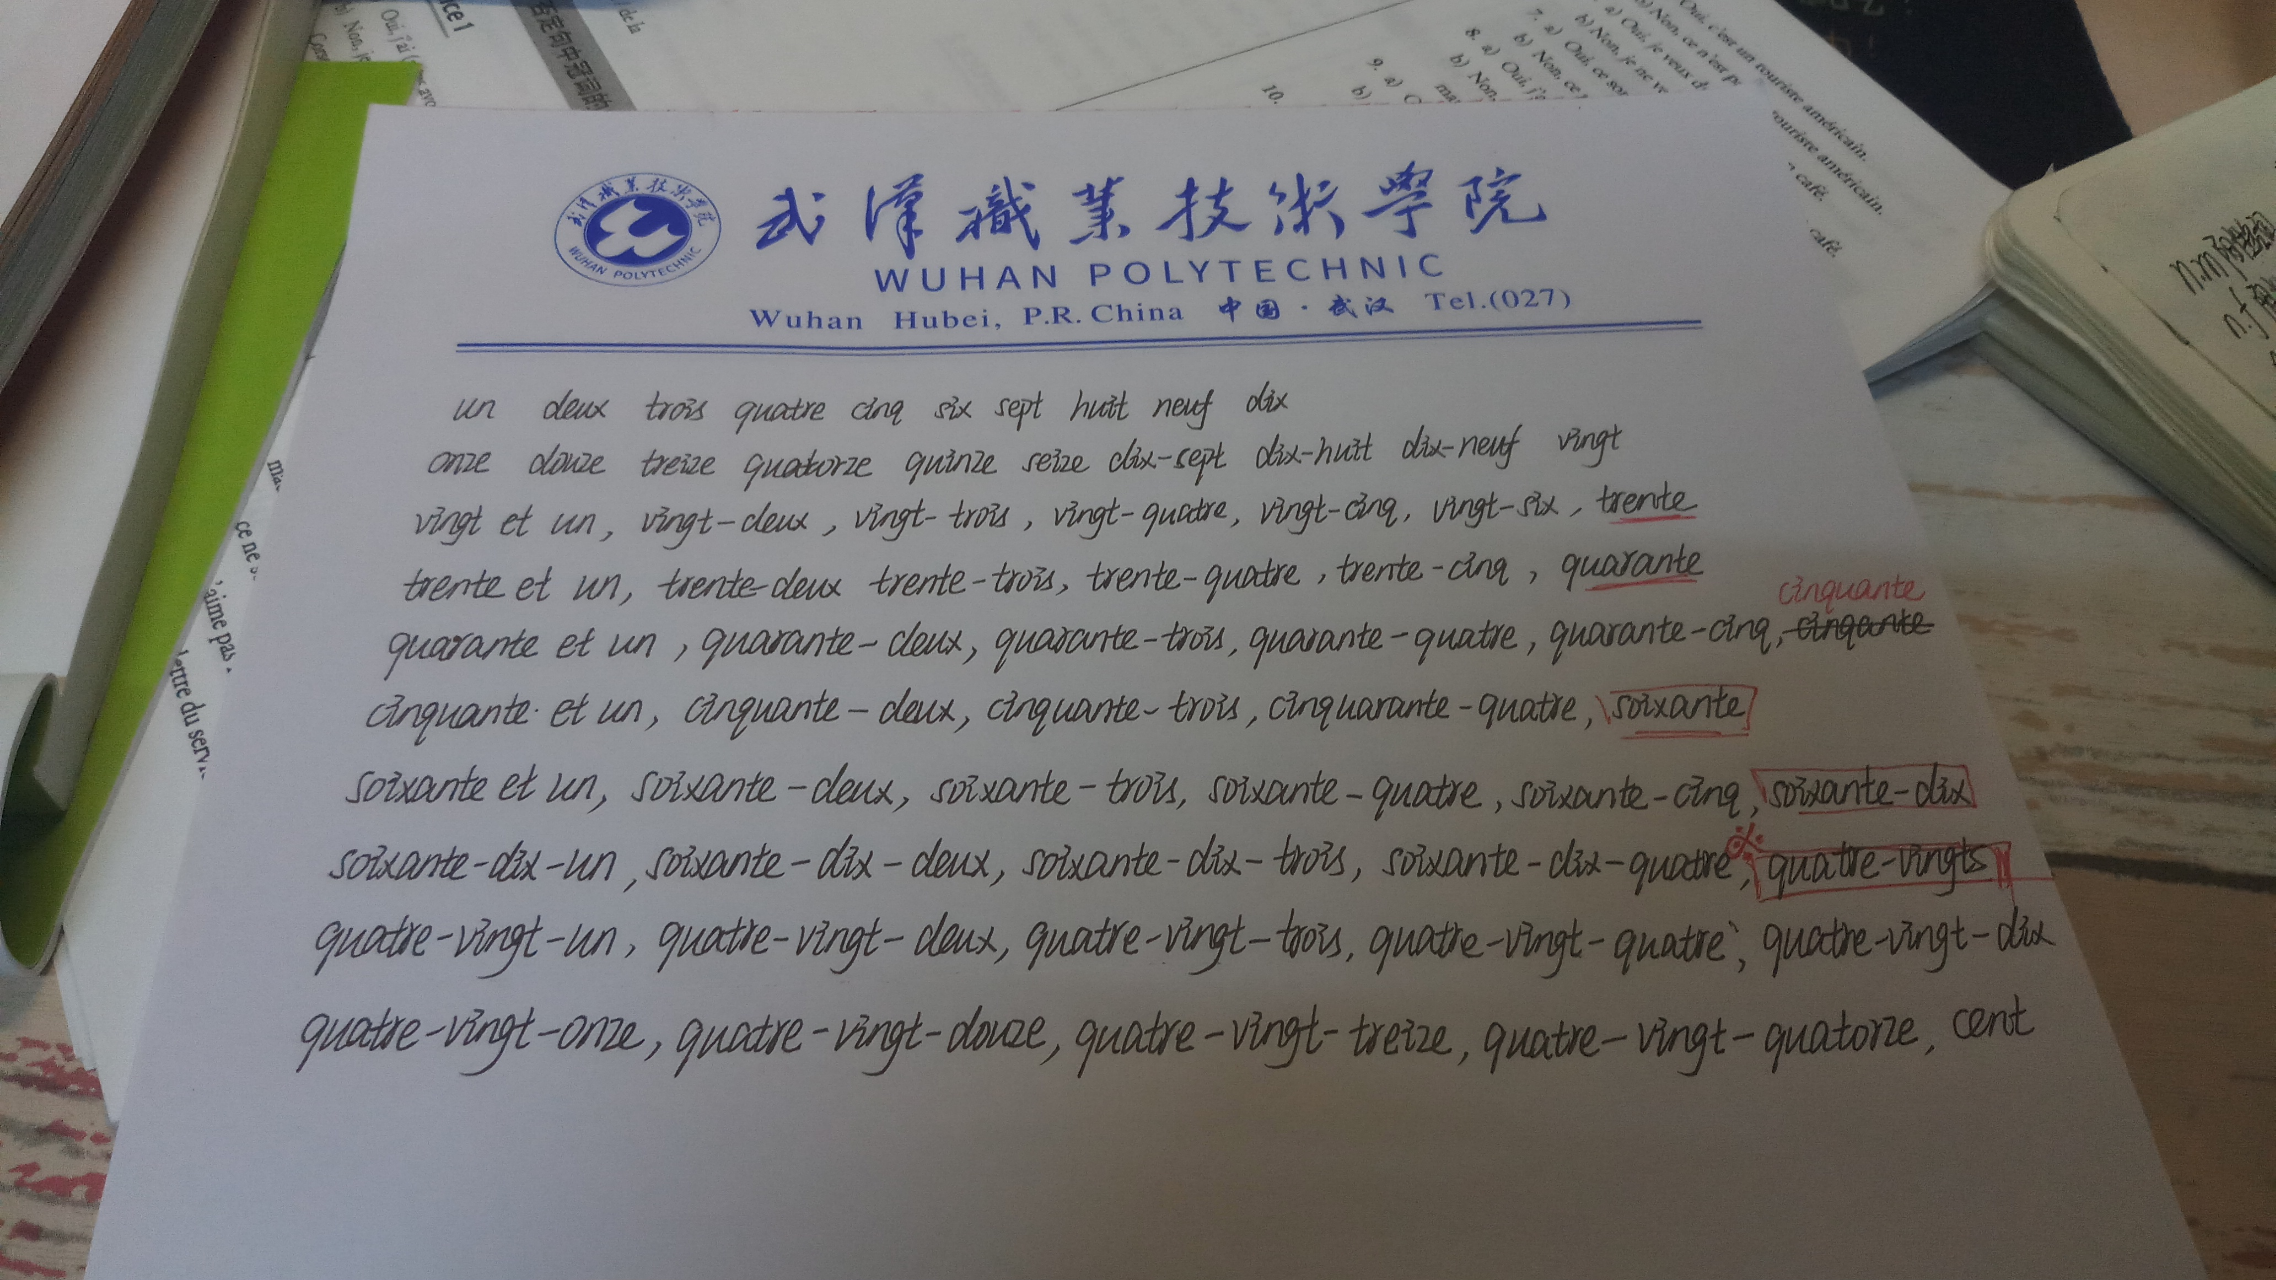 ce 1
Oui, j'ai
b) Non, je
de la
否定句中冠词的
10.
9. a)
b)
8. a) Oui, j'e
b) Non,
7. a) Oui, ce so
b) Non, ce
b) Non, je ne ve
a) Oui, je veux d
b) Non, ce n'est p
Oui, c'est un touriste américain.
ouriste américain.
café.
café.
ma
ce ne s
'aime pas
lettre du serv
武漢職業技術學院
WUHAN POLYTECHNIC
武漢職業技術學院
WUHAN POLYTECHNIC
Wuhan Hubei, P.R. China 中国·武汉 Tel.(027)
un deux trois quatre cinq six sept huit neuf dix
onze douze treize quatorze quinze seize dix-sept dix-huit dix-neuf vingt
vingt et un, vingt-deux, vingt-trois, vingt-quatre, vingt-cinq, vingt-six, trente
trente et un, trente-deux trente-trois, trente-quatre, trente-cinq, quarante
cinquante
quarante et un, quarante-deux, quarante-trois, quarante-quatre, quarante-cinq, cinqante
cinquante et un, cinquante-deux, cinquante-trois, cinquarante-quatre, soixante
soixante et un, soixante-deux, soixante-trois, soixante-quatre, soixante-cinq, soixante-dix
soixante-dix-un, soixante-dix-deux, soixante-dix-trois, soixante-dix-quatre, quatre-vingts
quatre-vingt-un, quatre-vingt-deux, quatre-vingt-trois, quatre-vingt-quatre, quatre-vingt-dix
quatre-vingt-onze, quatre-vingt-douze, quatre-vingt-treize, quatre-vingt-quatorze, cent